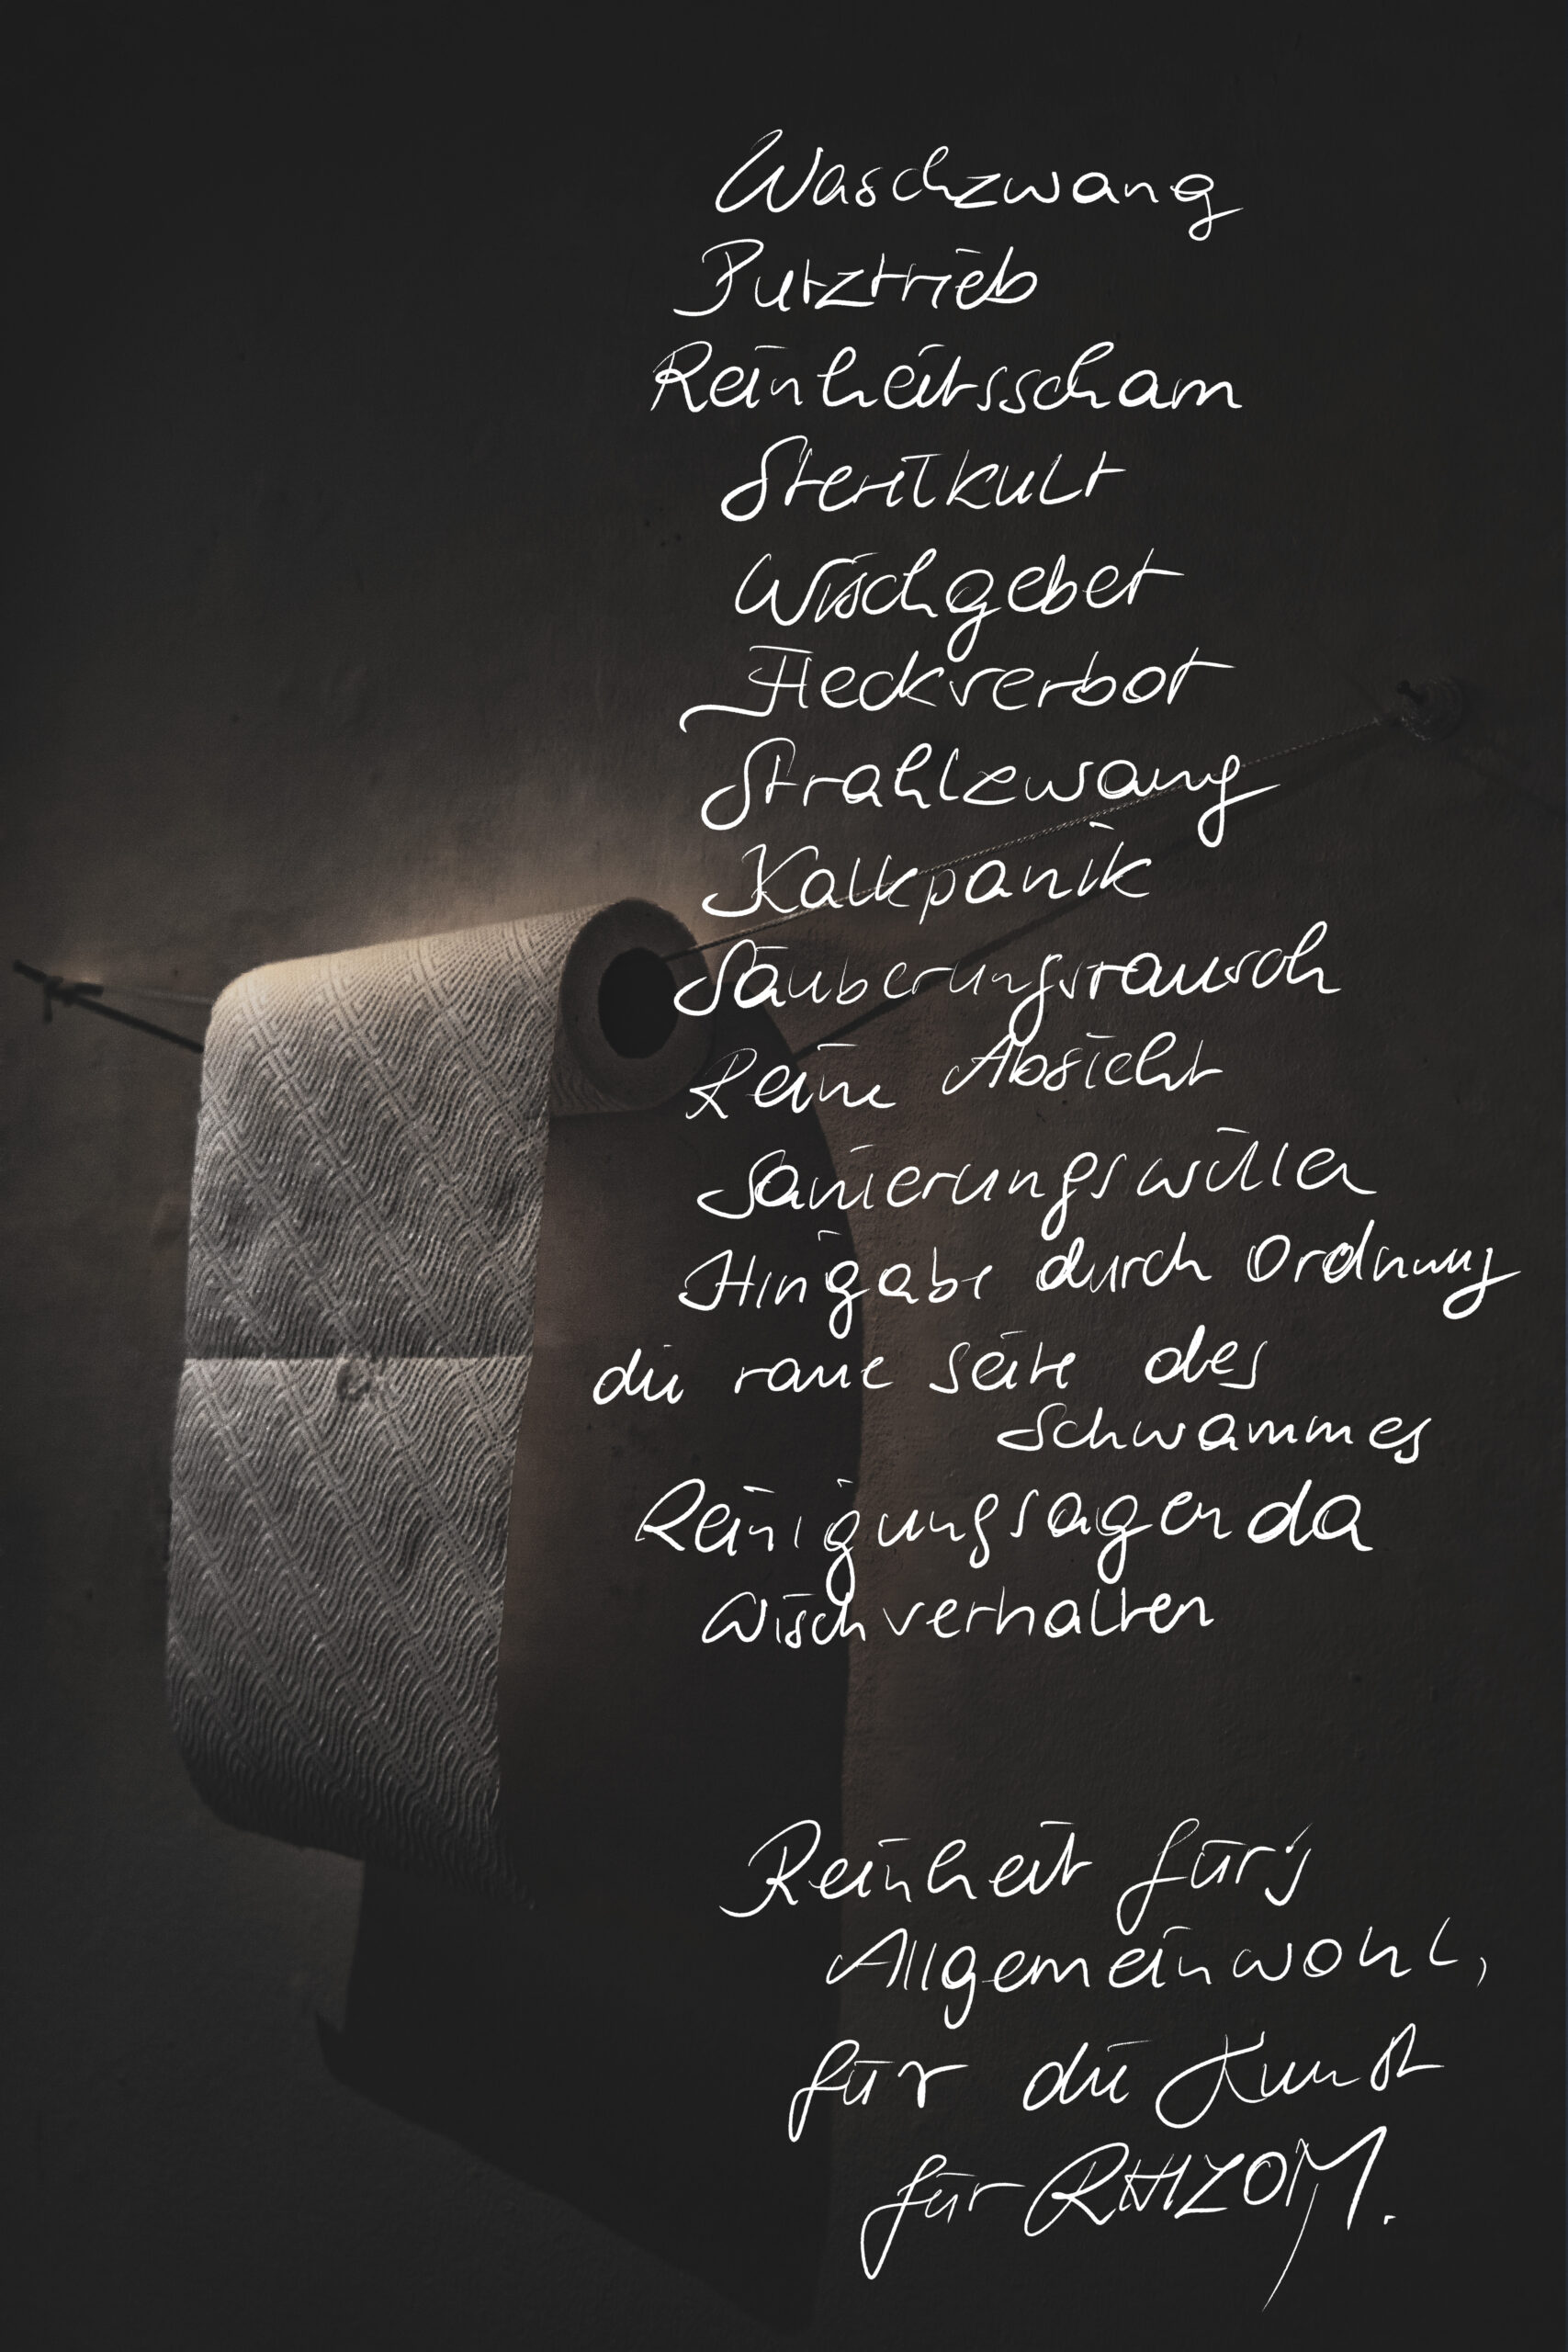 Waschzwang
Putztrieb
Reinheitsscham
Sterilkult
Wischgebet
Fleckverbot
Strahlzwang
Kalkpanik
Säuberungsrausch
Reine Absicht
Sanierungswille
Hingabe durch Ordnung
die raue Seite des
Schwammes
Reinigungsagenda
Wischverhalten
Reinheit für's
Allgemeinwohl,
für die Kunst
für RHIZOM.